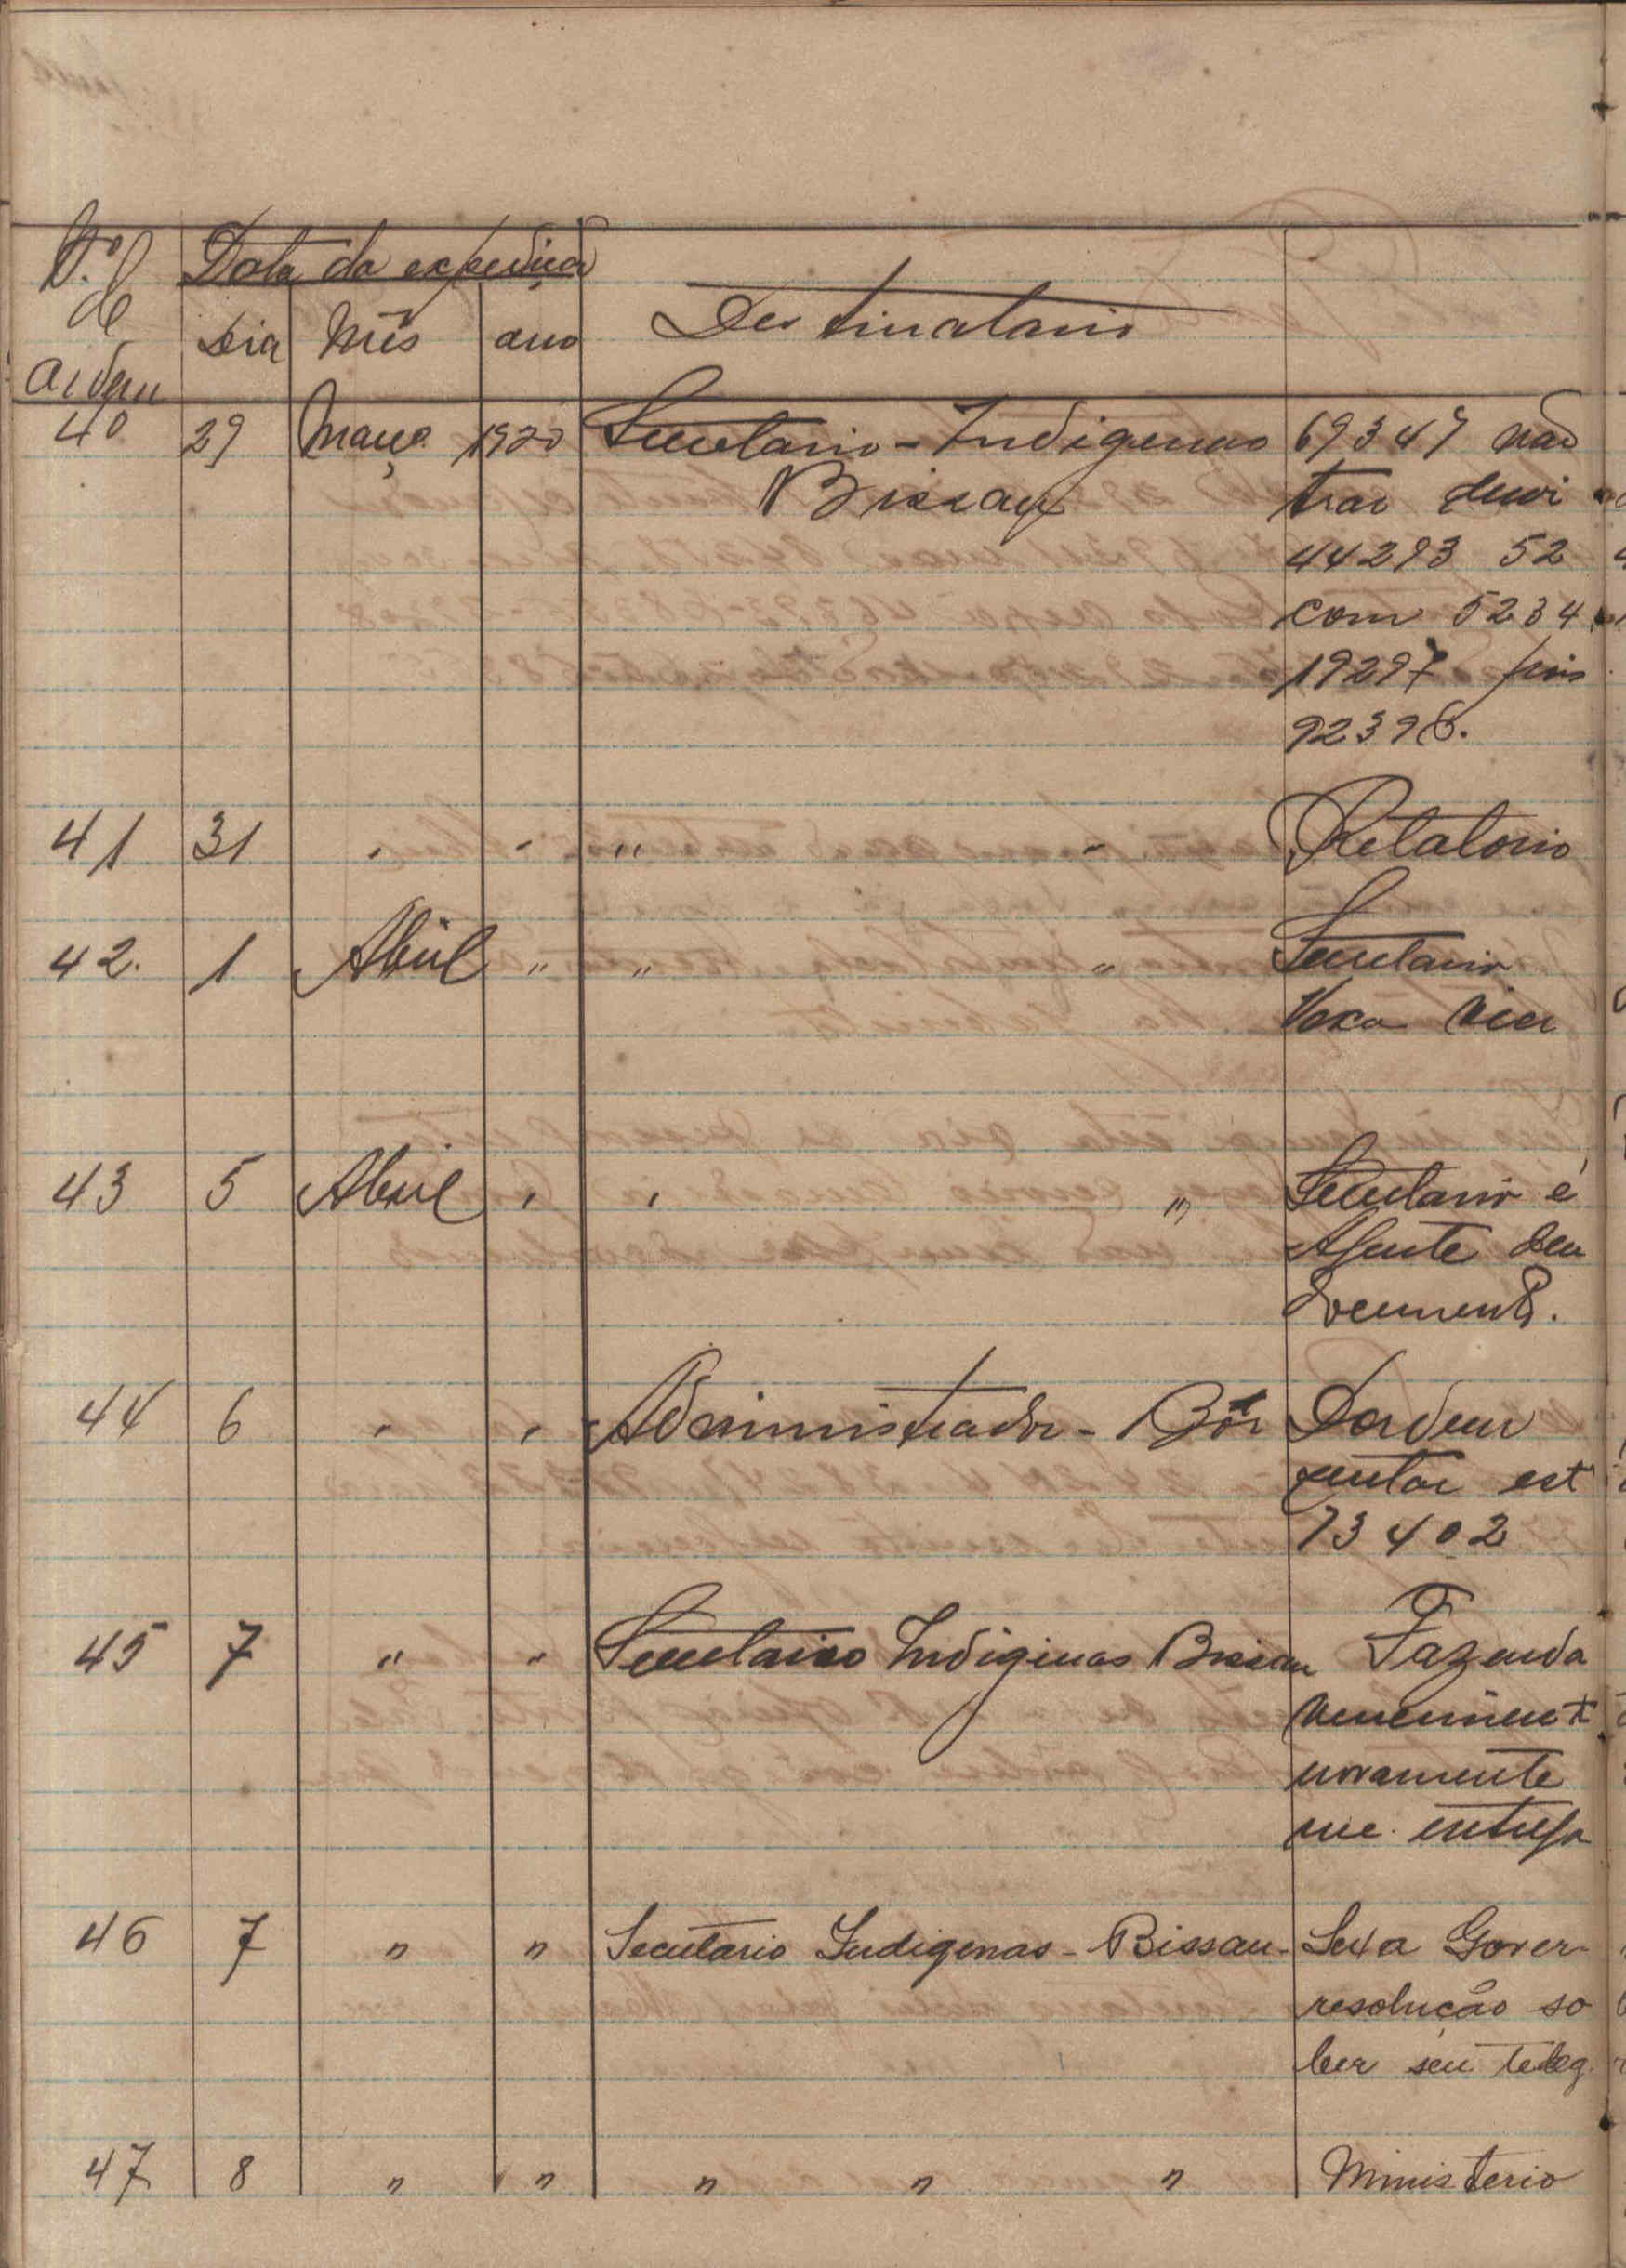 N.º Data da expedição
de
Dia Mês ano Destinatario
ordem
40 29 Março 1920 Secretario - Indigenas 69347 não
Bissau trar devi
44293 52
com 5234
19297 pois
92398.
41 31 " " " " Relatorio
42. 1 Abril " " " Secretario
Vexa
43 5 Abril " " " Secretario é
Agente deu
documentos.
44 6 " " Administrador - Bór Dordem
sentar est
73402
45 7 " " Secretario Indiginas Bissau Fazenda
venciment
novamente
me entrega
46 7 " " Secretario Indigenas - Bissau - Sexa Gover-
resolução so
ber seu teleg.
47 8 " " " " " Ministerio